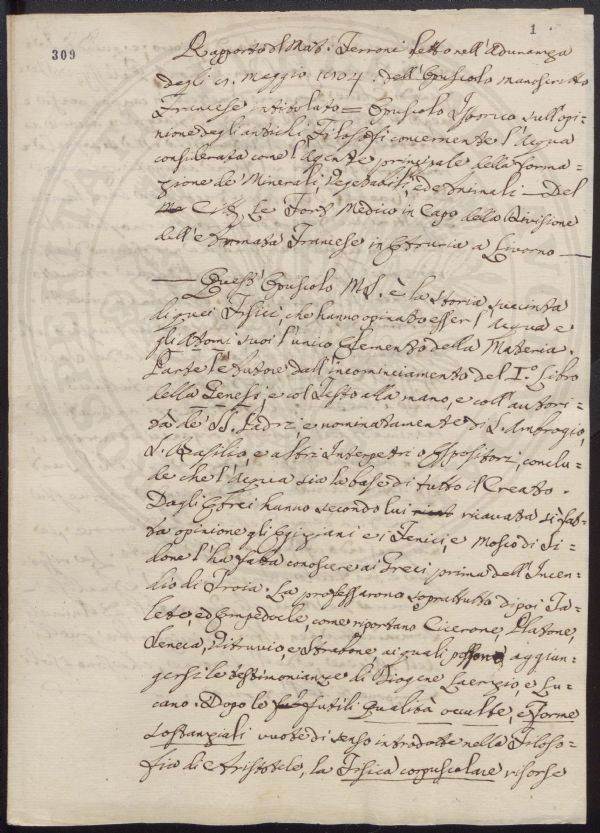 1
309
Rapporto del Mat. Ferroni letto nell'Adunanza
degli Maggio dell'Opuscolo manoscritto
Francese intitolato = Opuscolo Istorico sull'opi-
nione degli antichi Filosofi concernente l'Acqua
considerata come l'Agente principale della forma-
zione de' Minerali, Vegetabili, ed Animali — Del
Citt. Le Medico in Capo della Divisione
dell'Armata Francese in Etruria a Livorno —
— Quest'Opuscolo MS. è la storia succinta
di quei Fisici, che hanno opinato esser l'acqua e
gli Atomi suoi l'unico Elemento della Materia.
Parte l'Autore dall'incominciamento del I.o Libro
della Genesi, e col Testo alla mano, e coll'autori-
tà de' SS. Padri e nominatamente di S. Ambrogio,
S. Basilio, e altri Interpetri o Espositori, conclu-
de che l'Acqua sia la base di tutto il Creato.
Dagli Ebrei hanno secondo lui ricavata sì fat-
ta opinione gli Egiziani e i Fenici, e Mosco di Si-
done l'ha fatta conoscere ai Greci prima dell'Incen-
dio di Troia. La professarono soprattutto dipoi Ta-
lete, ed Empedocle, come riportano Cicerone, Platone,
Seneca, Vitruvio, e Strabone ai quali possono aggiun-
gersi le testimonianze di Diogene Laerzio, e Lu-
cano. Dopo le futili qualità occulte, e forme
sostanziali vuote di senso introdotte nella Filoso-
fia di Aristotele, la Fisica corpuscolare risorse